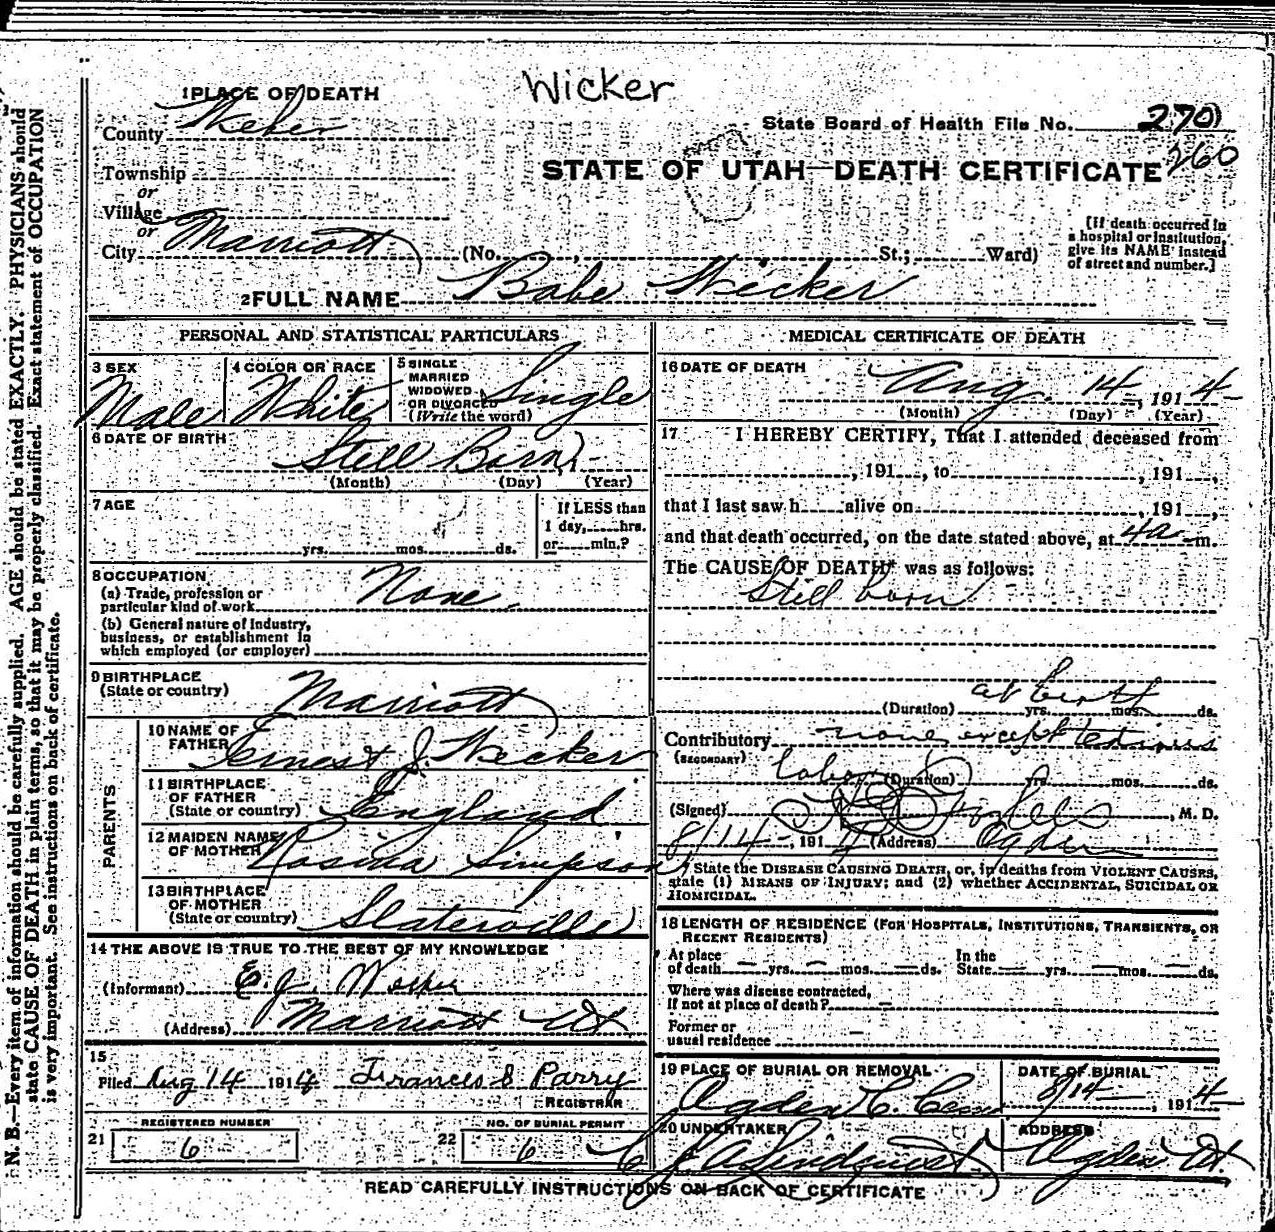 Wicker
1 PLACE OF DEATH
County Weber
State Board of Health File No. 270
260
Township
or
Village
or
City Marriott
STATE OF UTAH—DEATH CERTIFICATE
(No. , St.; Ward)
[If death occurred in
a hospital or institution,
give its NAME instead
of street and number.]
2 FULL NAME Babe Wicker
PERSONAL AND STATISTICAL PARTICULARS
3 SEX
Male
4 COLOR OR RACE
White
5 SINGLE
MARRIED
WIDOWED
OR DIVORCED
(Write the word)
Single
6 DATE OF BIRTH
Still Born
(Month) (Day) (Year)
7 AGE
yrs. mos. ds.
If LESS than
1 day, hrs.
or min.?
8 OCCUPATION
(a) Trade, profession or
particular kind of work None
(b) General nature of Industry,
business, or establishment in
which employed (or employer)
9 BIRTHPLACE
(State or country) Marriott
PARENTS
10 NAME OF
FATHER Ernest J. Wicker
11 BIRTHPLACE
OF FATHER
(State or country) England
12 MAIDEN NAME
OF MOTHER Rosina Simpson
13 BIRTHPLACE
OF MOTHER
(State or country) Slaterville
14 THE ABOVE IS TRUE TO THE BEST OF MY KNOWLEDGE
(Informant) E. J. Wicker
(Address) Marriott Ut
15
Filed Aug 14 1914 Frances S Parry
REGISTRAR
REGISTERED NUMBER
21 6
NO. OF BURIAL PERMIT
22 6
MEDICAL CERTIFICATE OF DEATH
16 DATE OF DEATH
Aug. 14, 1914
(Month) (Day) (Year)
17 I HEREBY CERTIFY, That I attended deceased from
, 191 , to , 191 ,
that I last saw h alive on , 191 ,
and that death occurred, on the date stated above, at 4a m.
The CAUSE OF DEATH* was as follows:
Still born
at birth
(Duration) yrs. mos. ds.
Contributory none except tedious
(SECONDARY) labor (Duration) yrs. mos. ds.
(Signed) , M. D.
8/14, 1914 (Address) Ogden
* State the DISEASE CAUSING DEATH, or, in deaths from VIOLENT CAUSES,
state (1) MEANS OF INJURY; and (2) whether ACCIDENTAL, SUICIDAL OR
HOMICIDAL.
18 LENGTH OF RESIDENCE (FOR HOSPITALS, INSTITUTIONS, TRANSIENTS, OR
RECENT RESIDENTS)
At place
of death — yrs. — mos. — ds.
In the
State — yrs. — mos. — ds.
Where was disease contracted,
If not at place of death? —
Former or
usual residence —
19 PLACE OF BURIAL OR REMOVAL
Ogden C. Cem
DATE OF BURIAL
8/14, 1914
20 UNDERTAKER
C J A Lindquist
ADDRESS
Ogden Ut.
READ CAREFULLY INSTRUCTIONS ON BACK OF CERTIFICATE
N. B.—Every item of information should be carefully supplied. AGE should be stated EXACTLY. PHYSICIANS should
state CAUSE OF DEATH in plain terms, so that it may be properly classified. Exact statement of OCCUPATION
is very important. See instructions on back of certificate.